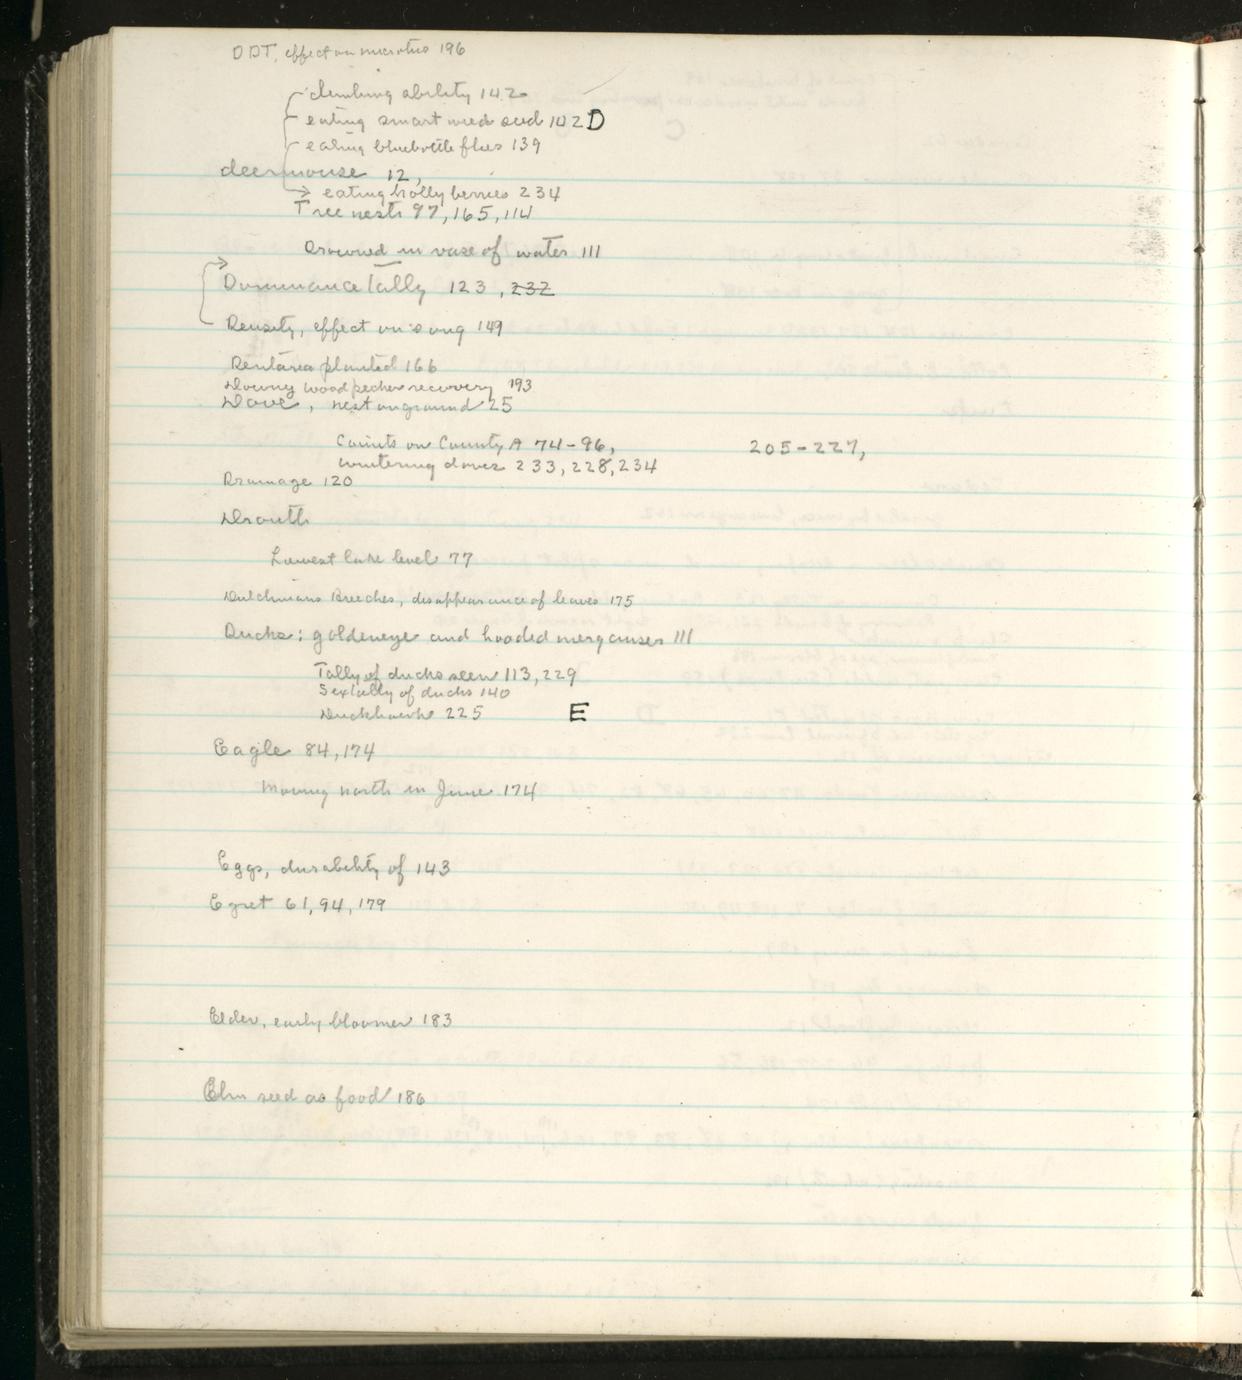 DDT, effect on microtus 196
climbing ability 142
eating smartweed seed 142 D
eating bluebottle flies 139
deermouse 12,
eating holly berries 234
Tree nests 97, 165, 114
Drowned in vase of water 111
Dominance Tally 123, 232
Density, effect on song 149
Dentaria planted 166
Downy woodpecker recovery 193
Dove, nest on ground 25
Counts on County A 74-96, 205-227,
wintering doves 233, 228, 234
Drumage 120
Drouth
Lowest lake level 77
Dutchmans Breeches, disappearance of leaves 175
Ducks: goldeneye and hooded merganser 111
Tally of ducks seen 113, 229
Sex tally of ducks 140
Duckhawk 225
E
Eagle 84, 174
Moving north in June 174
Eggs, durability of 143
Egret 61, 94, 179
Elder, early bloomer 183
Elm seed as food 186